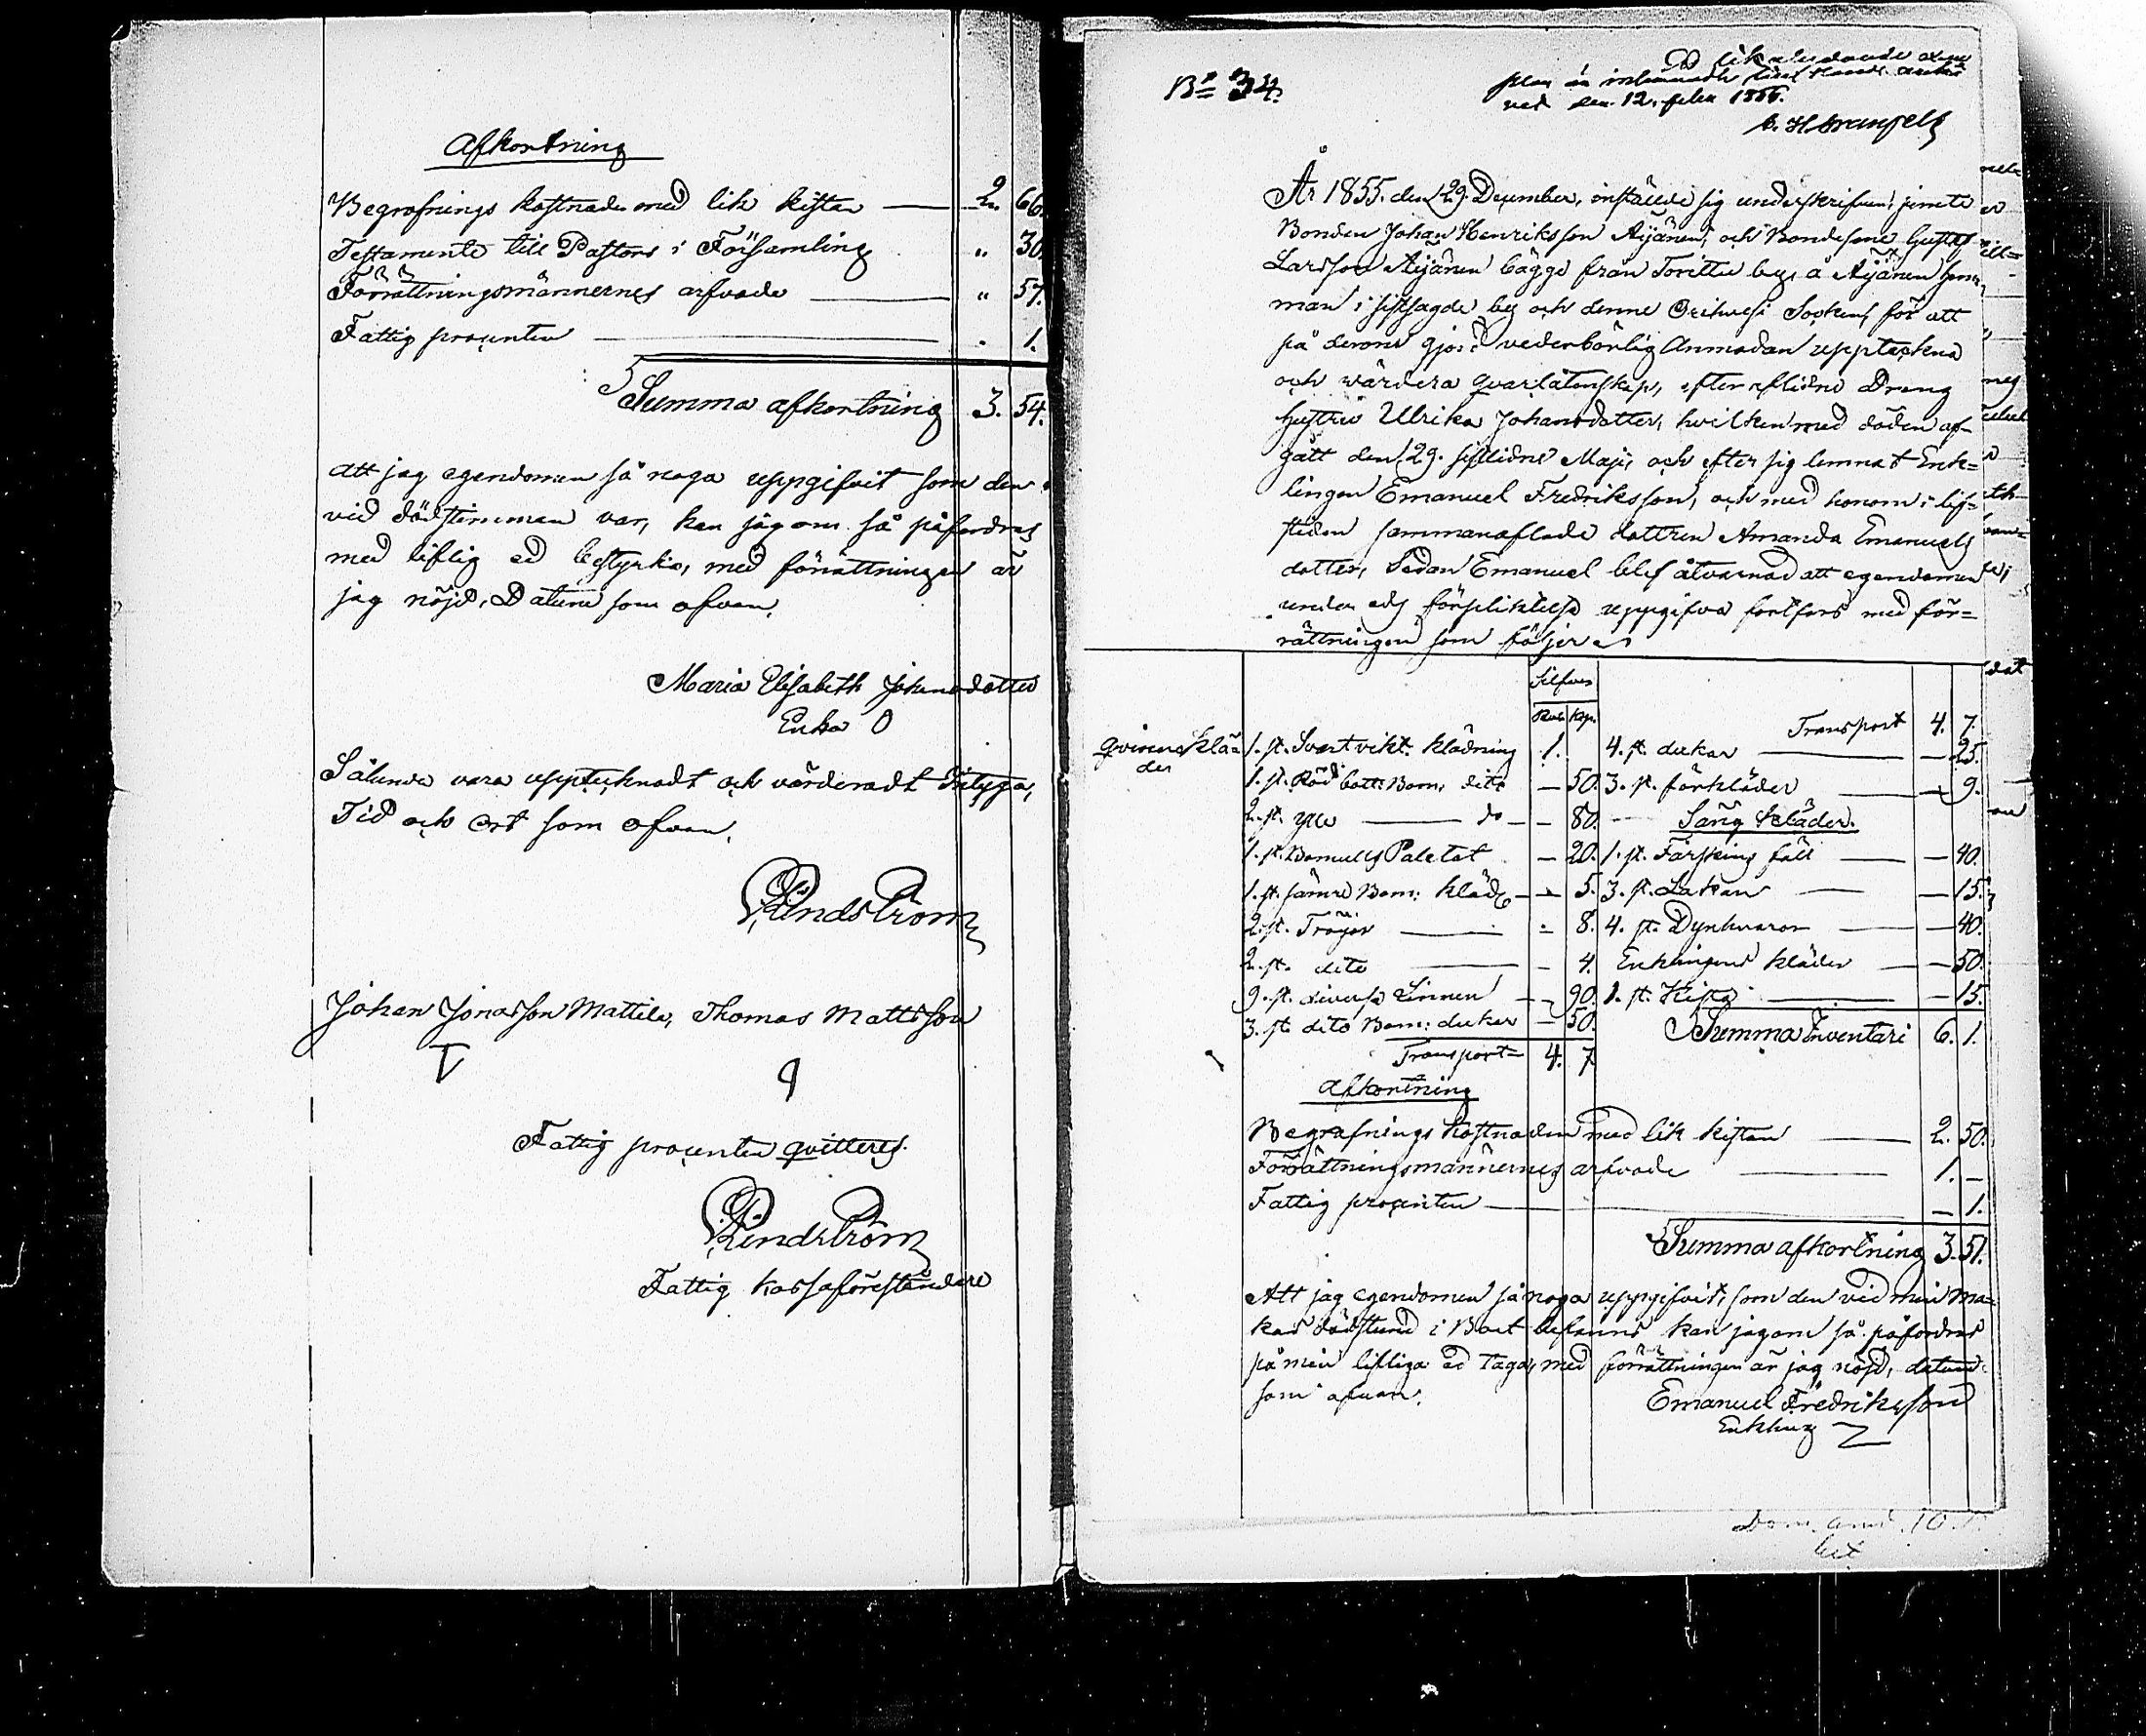 Afkortning
Begrafnings kostnader med lik kistan 2. 66.
Testamente till Pastors i Församling " 30.
Förrättningsmännernes arfvode " 57.
Fattig procenten " 1.
Summa afkortning 3. 54.
Att jag egendomen så noga uppgifvit som den
vid dödstimman var, kan jag om så påfordras
med liflig ed bestyrka, med förrättningen är
jag nöjd, Datum som ofvan.
Maria Elisabeth Johansdotter
Enka
Sålunda vara upptecknadt och värderadt Intyga,
Tid och ort som ofvan.
Lindström
Johan Jonasson Mattila, Thomas Mattsson
Fattig procenten qvitteras.
Lindström
Fattig kassaföreståndare
No 34.
Ett lika lydande exem
plar är inlämnadt
ved den 12. febr 1856.
År 1855. den 29. December, instälde sig underskrifven, jemte
Bonden Johan Henriksson Äijänen, och Bondesone Gustaf
Larsson Äijänen bägge från Torittu by, å Äijänen hem
man i sistsagde by och denne Orihvesi Socken, för att
på derom gjord vederbörlig Anmodan uppteckna
och värdera qvarlåtenskap, efter aflidne Dreng
hustru Ulrika Johansdotter, hvilken med döden af-
gått den 29. sistlidne Maji, och efter sig lemnat Enk=
lingen Emanuel Fredriksson, och med honom i lifs=
tiden sammanaflade dottren Amanda Emanuels
dotter, Sedan Emanuel blef åtvarnad att egendomen
under eds förpliktelse uppgifva fortfors med för=
rättningen som följer
Silfver
Rub. Kop.
Transport 4. 7.
Qvinns klä=
der
1. st. Svart vikt. klädning 1. 4. st. dukar 25.
1. st. Röd bott: Bom: dito 50. 3. st. förkläder 9.
2. st. do 80. Säng kläder.
1. st. Bomulls Paletot 20. 1. st. Fårskins fäll 40.
1. st. sämre Bom: kläd 5. 3. st. Lakan 15.
2. st. Tröjor 8. 4. st. Dynhvaror 40.
2. st. dito 4. Enklingens kläder 50.
9. st. diverse Linnen 90. 1. st. Kista 15.
3. st. dito Bom: dukar 50. Summa Inventari 6. 1.
Transport 4. 7
Afkortning
Begrafnings kostnaden med lik kistan 2. 50.
Förrättningsmännernes arfvode 1. –
Fattig procenten – 1.
Summa afkortning 3. 51.
Att jag egendomen så noga uppgifvit, som den vid min ma=
kas dödstund i Boet befanns kan jag om så påfordras
på min lifliga ed taga, med förrättningen är jag nöjd, datum
som ofvan.
Emanuel Fredriksson
Enkling